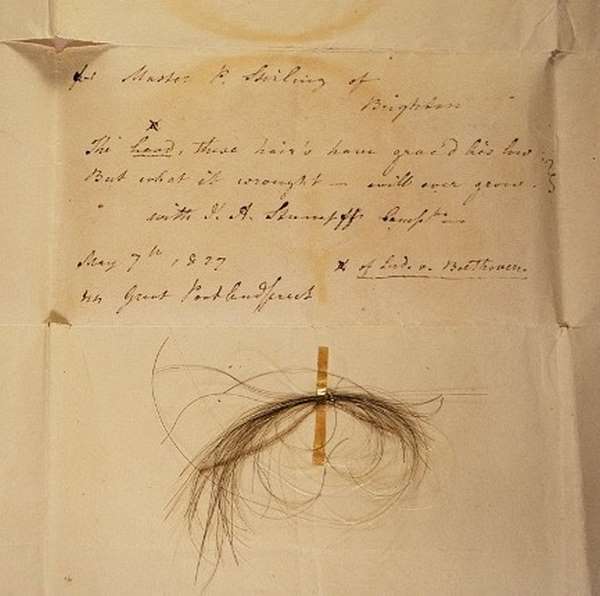 for Master P. Stirling of
Brighton
x
The head, these hair's have grac'd lies low
But what it wrought — will ever grow.
with J. A. Stumpff
May 7th, 1827
x of Lud. v. Beethoven.
Great Portlandstreet